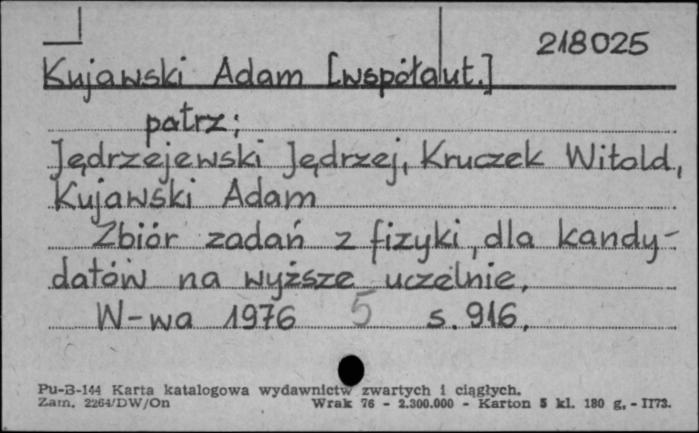 218025
Kujawski Adam [współaut.]
patrz;
Jędrzejewski Jędrzej, Kruczek Witold,
Kujawski Adam
Zbiór zadań z fizyki, dla kandy-
datów na wyższe uczelnie,
W-wa 1976 5 s. 916,
Pu-B-144 Karta katalogowa wydawnictw zwartych i ciągłych.
Zam. 2264/DW/On Wrak 76 - 2.300.000 - Karton 5 kl. 180 g. - II73.